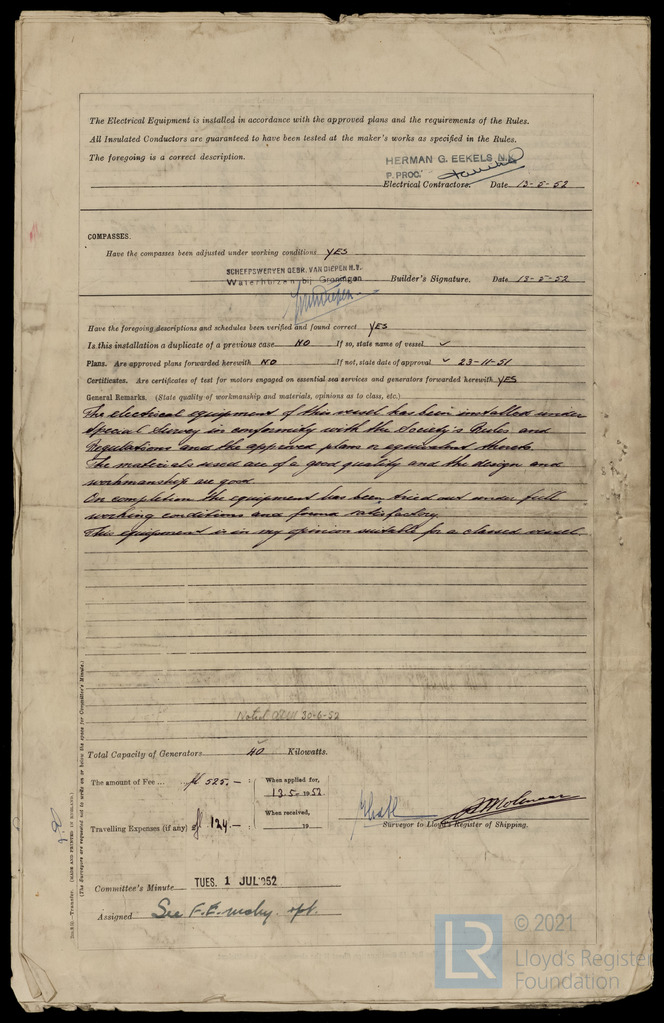 The Electrical Equipment is installed in accordance with the approved plans and the requirements of the Rules.
All Insulated Conductors are guaranteed to have been tested at the maker's works as specified in the Rules.
The foregoing is a correct description.
HERMAN G. EEKELS N.V.
P. PROC.
Electrical Contractors. Date 13-5-52
COMPASSES.
Have the compasses been adjusted under working conditions YES
SCHEEPSWERVEN GEBR. VAN DIEPEN N.V.
Waterhuizen bij Groningen Builder's Signature. Date 13-5-52
Have the foregoing descriptions and schedules been verified and found correct YES
Is this installation a duplicate of a previous case NO If so, state name of vessel ✓
Plans. Are approved plans forwarded herewith NO If not, state date of approval ✓ 23-11-51
Certificates. Are certificates of test for motors engaged on essential sea services and generators forwarded herewith YES
General Remarks. (State quality of workmanship and materials, opinions as to class, etc.)
The electrical equipment of this vessel has been installed under
special survey in conformity with the Society's Rules and
Regulations and the approved plans or equivalent thereto.
The materials used are of a good quality and the design and
workmanship are good.
On completion the equipment has been tried out under full
working conditions and found satisfactory.
This equipment is in my opinion suitable for a classed vessel.
Noted 30-6-52
Total Capacity of Generators 40 Kilowatts.
The amount of Fee ... fl 525,- : When applied for,
13.5. 1952
When received,
Travelling Expenses (if any) fl 124.- : 19
Surveyor to Lloyd's Register of Shipping.
Committee's Minute TUES. 1 JUL 1952
Assigned See F.E. mchy. rpt.
Transfer. (MADE AND PRINTED IN ENGLAND.)
(The Surveyors are requested not to write on or below the space for Committee's Minute.)
LR
© 2021
Lloyd's Register
Foundation